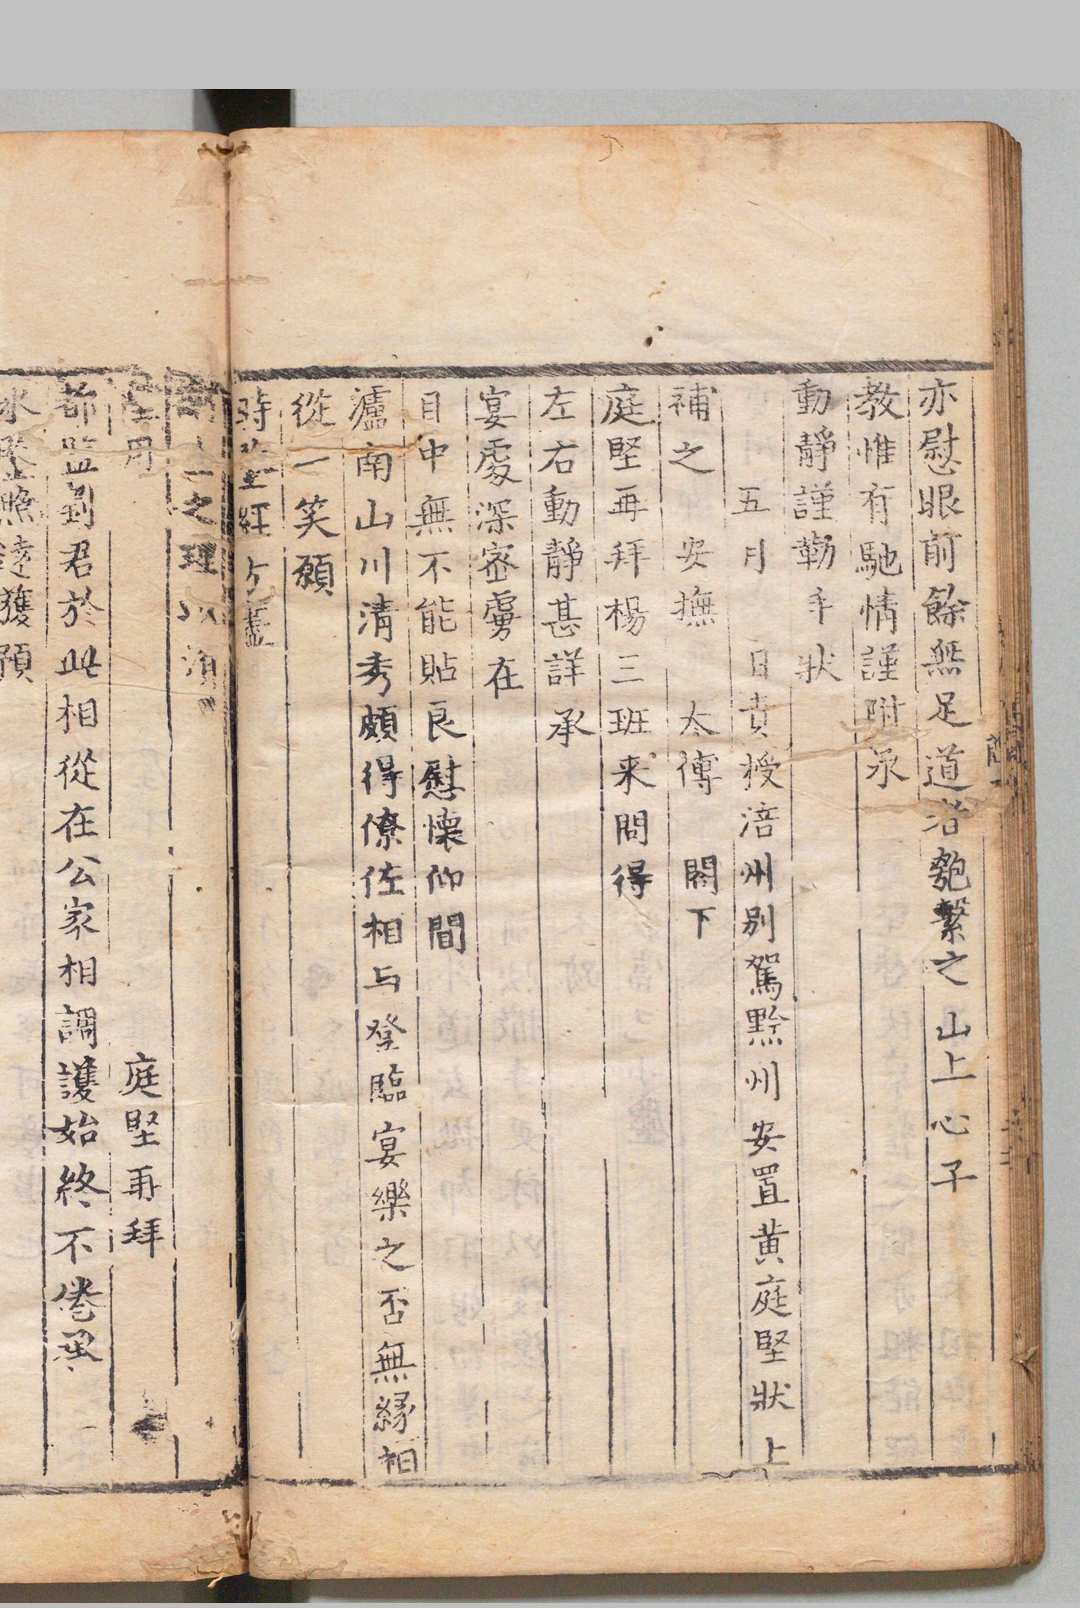 亦慰眼前餘無足道者匏繫之山上心子
教惟有馳情謹附承
動靜謹勒手狀
五月 日責授涪州別駕黔州安置黄庭堅狀上
補之 安撫 太傅 閤下
庭堅再拜楊三班来問得
左右動靜甚詳承
宴處深密雩在
目中無不能貼良慰懷仰間
瀘南山川清秀頗得僚佐相与登臨宴樂之否無縁相
從一笑願
時
之理
庭堅再拜
都監劉君於此相從在公家相調護始終不倦承
照 獲預